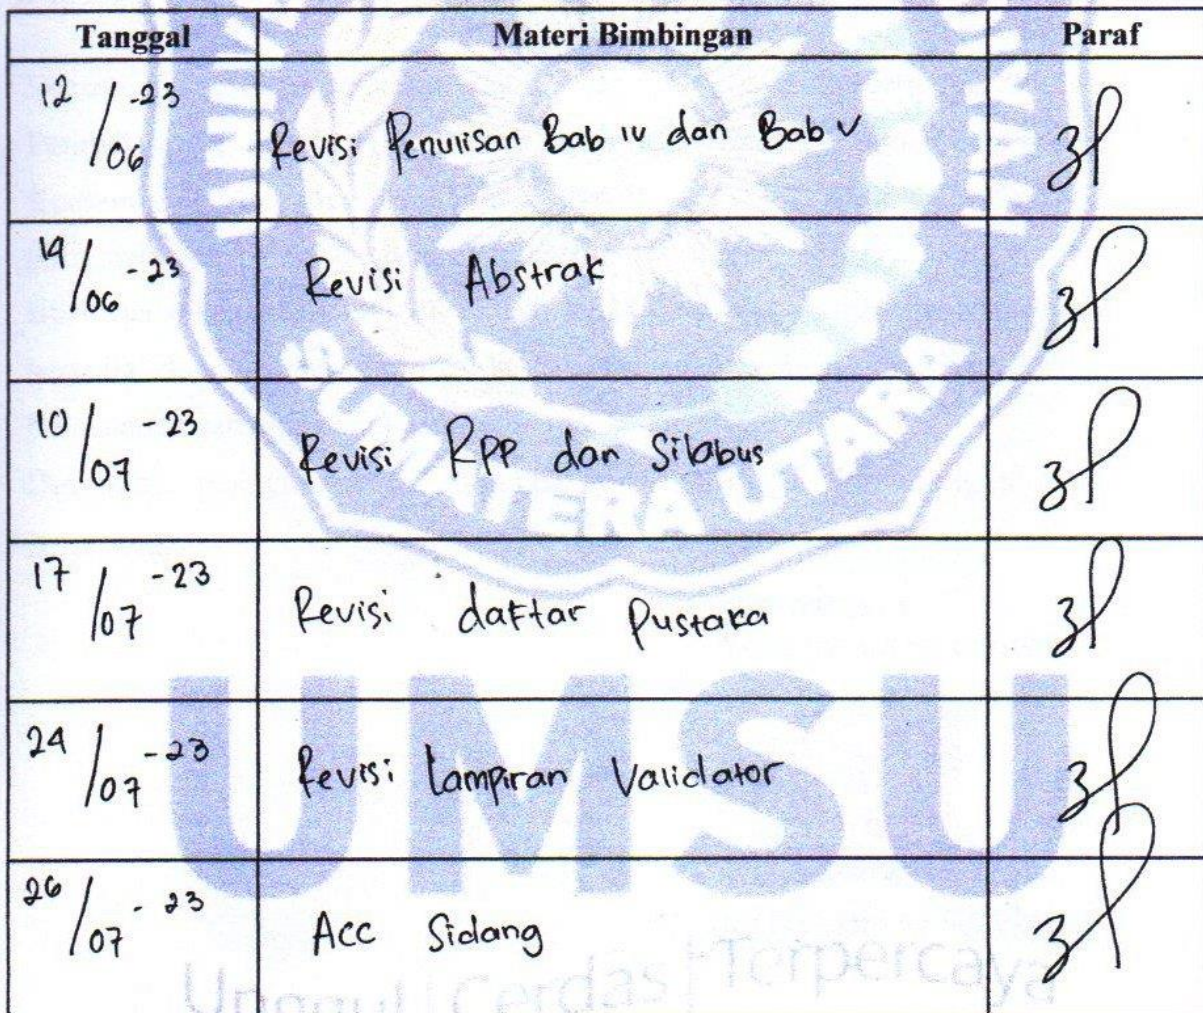 Tanggal Materi Bimbingan Paraf
12/06-23 Revisi Penulisan Bab IV dan Bab V
19/06-23 Revisi Abstrak
10/07-23 Revisi RPP dan Silabus
17/07-23 Revisi daftar Pustaka
24/07-23 Revisi Lampiran Validator
26/07-23 Acc Sidang
SUMATERA UTARA
UMSU
Unggul | Cerdas | Terpercaya